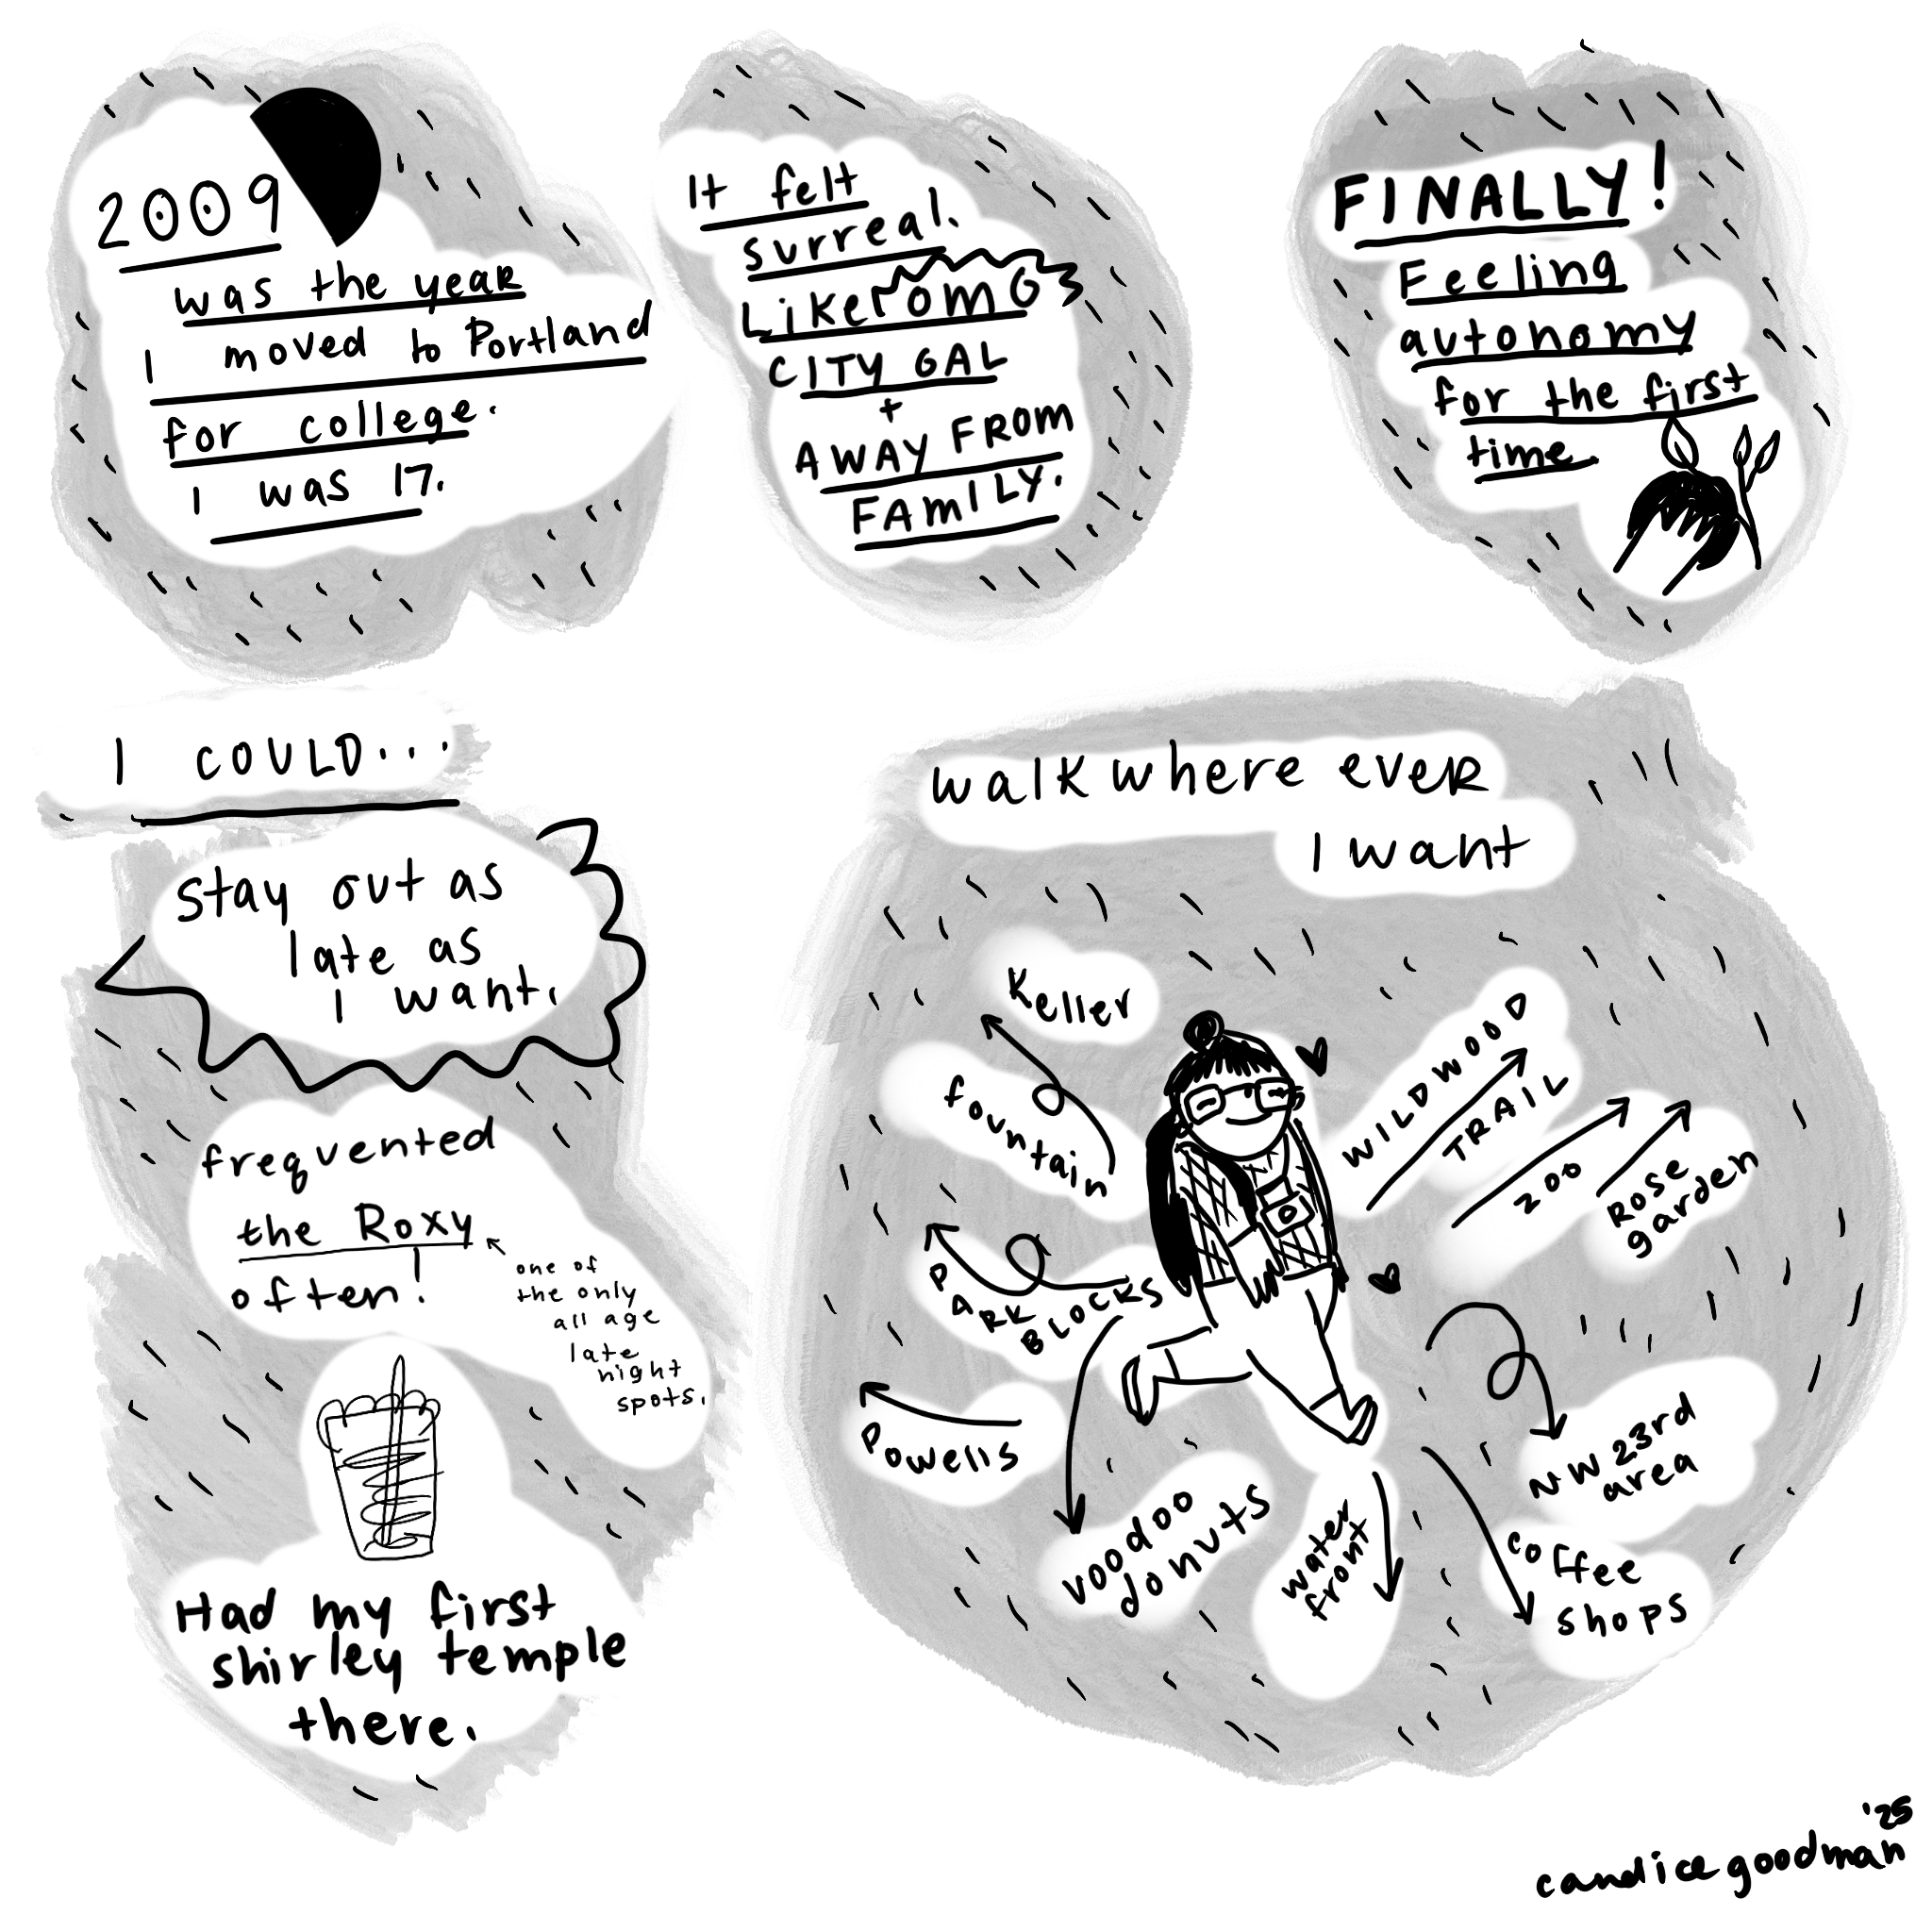 2009
was the year
I moved to Portland
for college.
I was 17.
It felt
surreal.
Like OMG
CITY GAL
+
AWAY FROM
FAMILY.
FINALLY!
Feeling
autonomy
for the first
time.
I COULD...
stay out as
late as
I want.
frequented
the Roxy
often!
one of
the only
all age
late
night
spots.
Had my first
shirley temple
there.
walk where ever
I want
Keller
fountain
PARK
BLOCKS
Powells
voodoo
donuts
water
front
WILDWOOD
TRAIL
zoo
Rose
garden
NW 23rd
area
coffee
shops
candice goodman '25